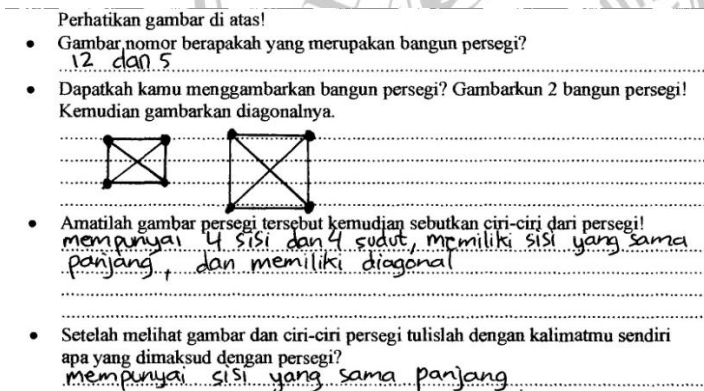 Perhatikan gambar di atas!
• Gambar nomor berapakah yang merupakan bangun persegi?
12 dan 5
• Dapatkah kamu menggambarkan bangun persegi? Gambarkun 2 bangun persegi!
Kemudian gambarkan diagonalnya.
• Amatilah gambar persegi tersebut kemudian sebutkan ciri-ciri dari persegi!
mempunyai 4 sisi dan 4 sudut, memiliki sisi yang sama
panjang, dan memiliki diagonal
• Setelah melihat gambar dan ciri-ciri persegi tulislah dengan kalimatmu sendiri
apa yang dimaksud dengan persegi?
mempunyai sisi yang sama panjang